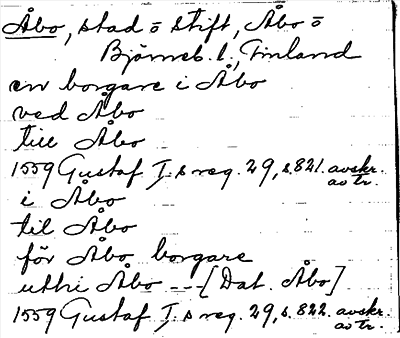 Åbo, stad o stift, Åbo o
Björneb. l., Finland
en borgare i Åbo
ved Åbo
till Åbo
1559 Gustaf I.s reg. 29, s. 821. avskr. av tr.
i Åbo
til Åbo
för Åbo borgare
uthi Åbo --- [Dat. Åbo]
1559 Gustaf I.s reg. 29, s. 822. avskr. av tr.